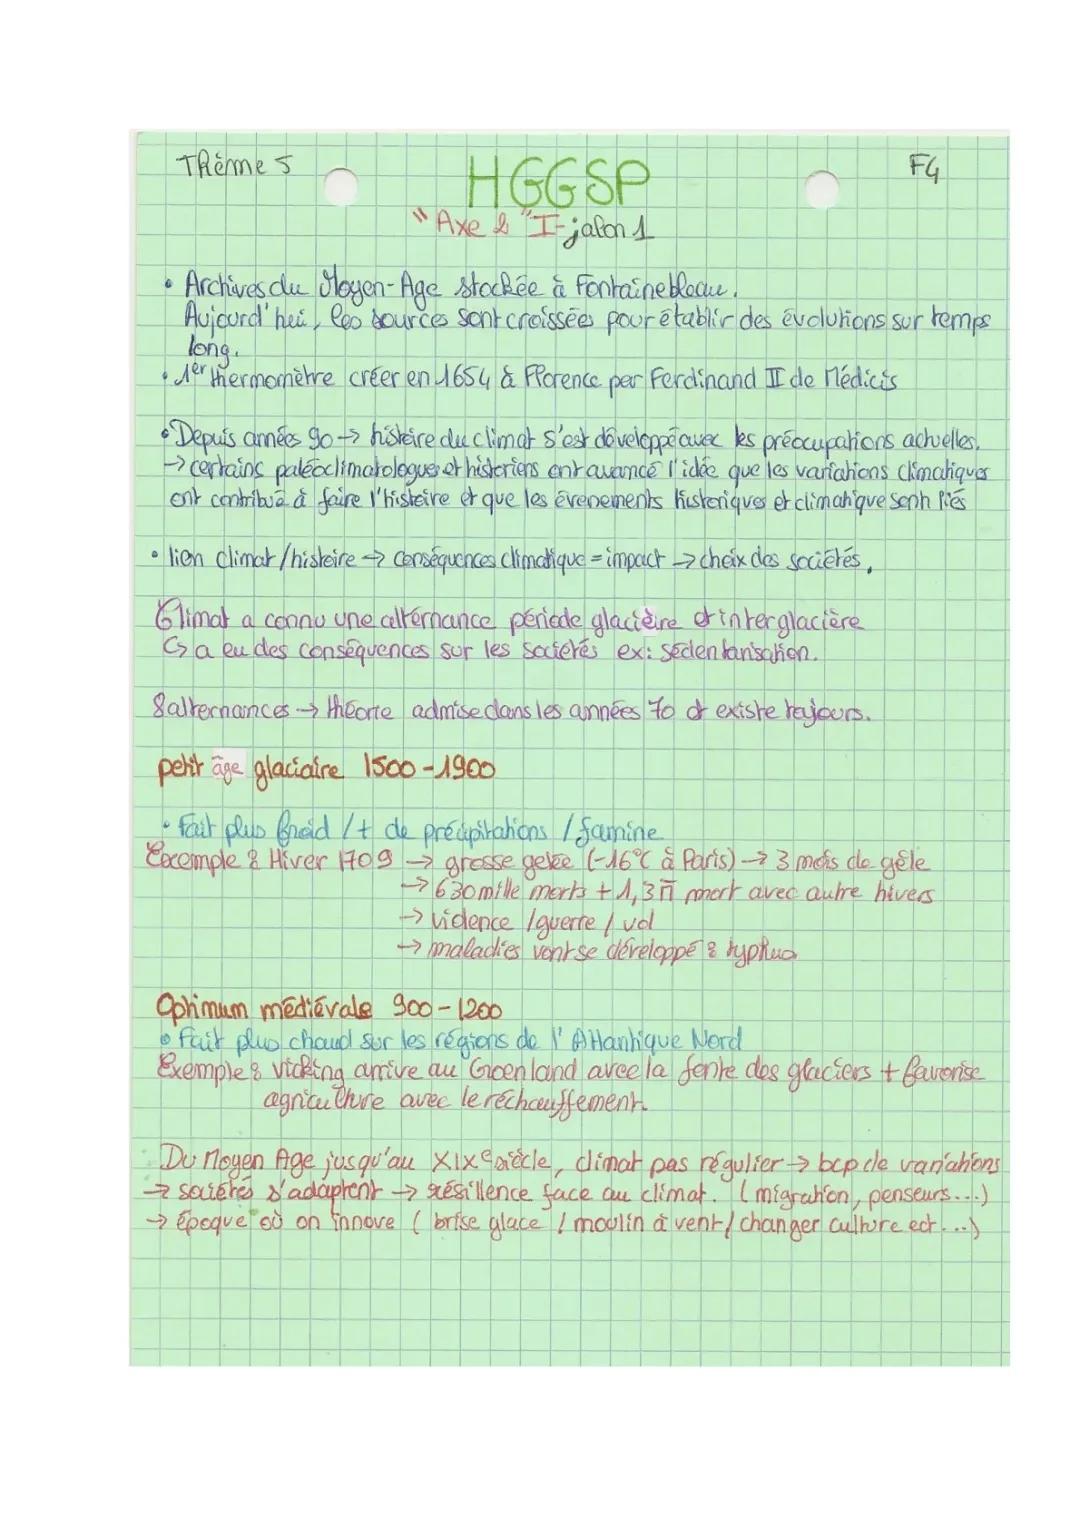 Thème 5
F4
HGGSP
"Axe 2" I-jalon 1
• Archives du Moyen-Age stockée à Fontainebleau.
Aujourd'hui, les sources sont croissées pour établir des évolutions sur temps
long.
• 1er thermomètre créer en 1654 à Florence par Ferdinand II de Médicis
• Depuis années 90 → histoire du climat s'est développé avec les préocupations actuelles.
→ certains paléoclimatologues et historiens ont avancé l'idée que les variations climatiques
ont contribué à faire l'histoire et que les évenements historiques et climatique sont liés
• lien climat/histoire → conséquences climatique = impact → choix des sociétés.
Climat a connu une alternance période glacière et interglacière
↳ a eu des conséquences sur les sociétés ex: sédentarisation.
8 alternances → théorie admise dans les années 70 et existe toujours.
petit âge glaciaire 1500-1900
• Fait plus froid / + de précipitations / famine
Exemple : Hiver 1709 → grosse gelée (-16°C à Paris) → 3 mois de gèle
→ 630 mille morts + 1,3 M mort avec autre hivers
→ violence / guerre / vol
→ maladies vont se développé : typhus
Optimum médiévale 900-1200
• Fait plus chaud sur les régions de l'Atlantique Nord
Exemple : vicking arrive au Groenland avec la fonte des glaciers + favorise
agriculture avec le réchauffement.
Du Moyen Age jusqu'au XIXe siècle, climat pas régulier → bcp de variations
→ sociétés s'adaptent → résillence face au climat. (migration, penseurs...)
→ époque où on innove ( brise glace / moulin à vent / changer culture ect...)